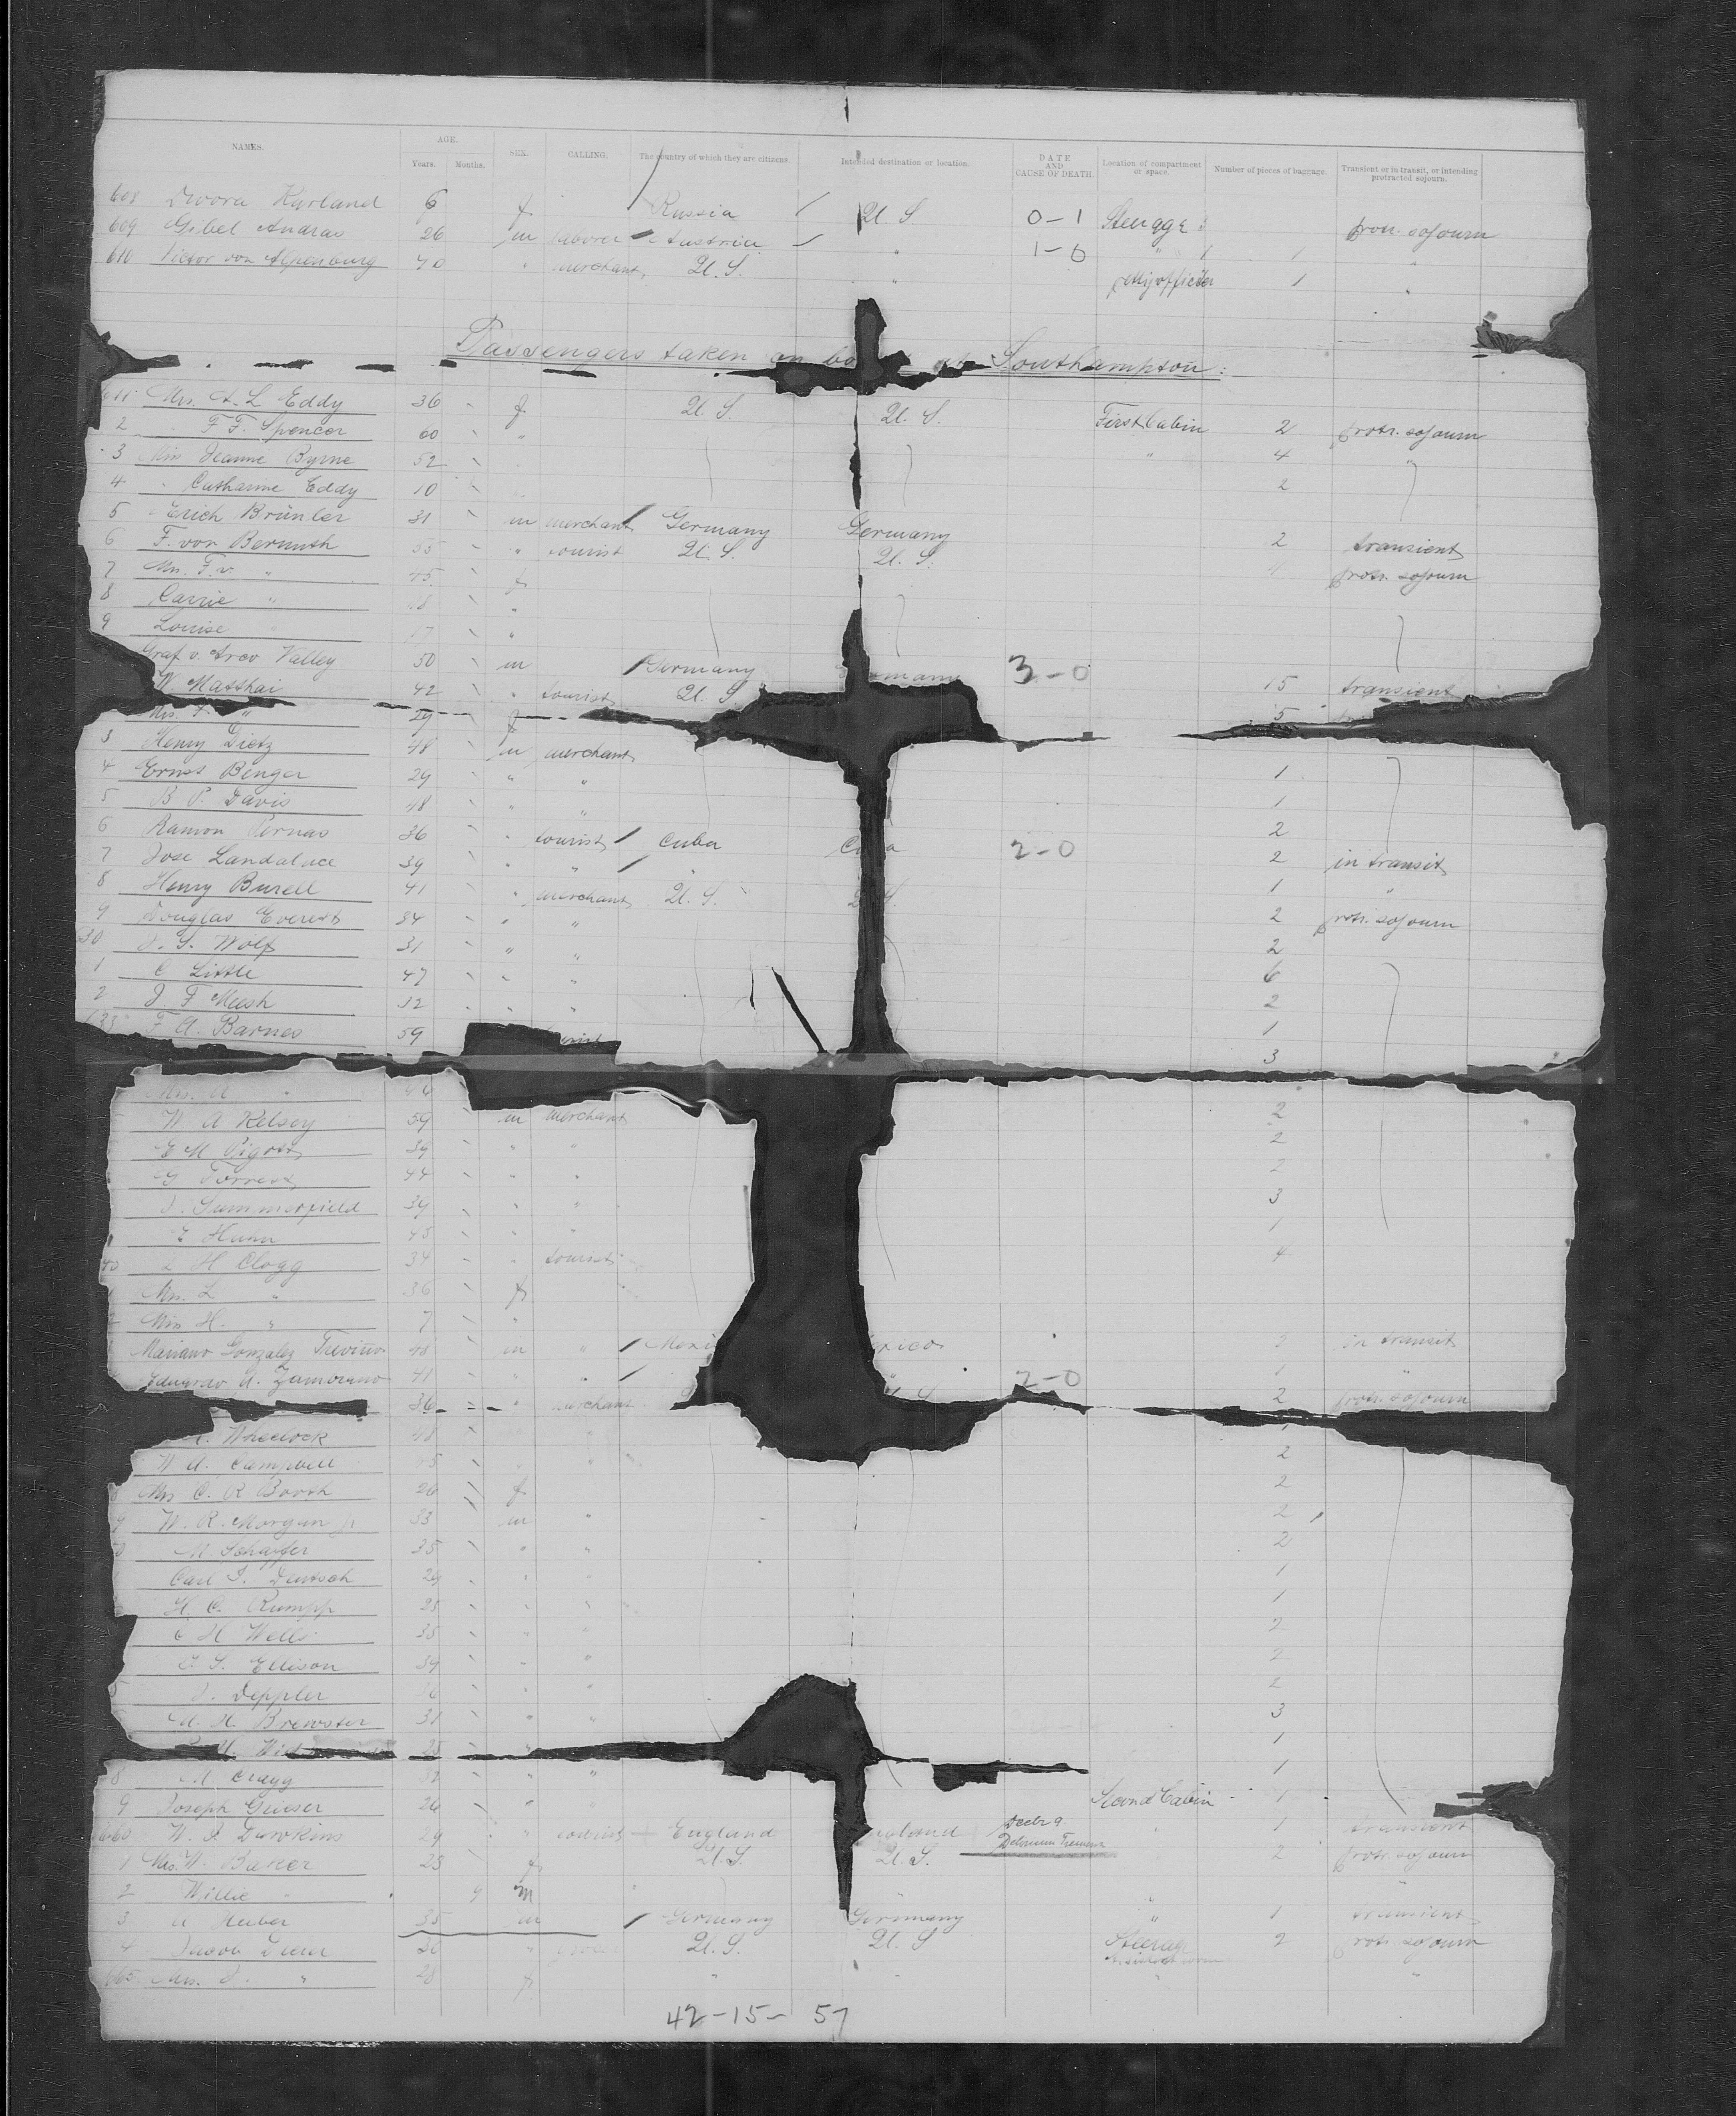 NAMES. AGE. Years. Months. SEX. CALLING. The country of which they are citizens. Intended destination or location. DATE AND CAUSE OF DEATH. Location of compartment or space. Number of pieces of baggage. Transient or in transit, or intending protracted sojourn.
608 Dwora Karland 6 f. Russia U.S. 0-1 Steerage protr. sojourn
609 Gibel Andras 26 m laborer Austria " 1-0 " 1 "
610 Victor von Alpenburg 40 " merchant U.S. " 1 "
Passengers taken on bo at Southampton:
611 Mrs. A. L Eddy 36 f. U.S. U.S. First Cabin 2 protr. sojourn
2 " F F. Spencer 60 " " 4 "
3 Miss Jeanne Byrne 52 2
4 " Catharine Eddy 10
5 Erich Brünler 31 m merchant Germany Germany 2 transient
6 F. von Bermuth 55 " tourist U.S. U.S. 4 protr. sojourn
7 Mrs. F. v. " 45 f
8 Carrie " 18 "
9 Louise " 17 "
Graf v. Arco Valley 50 m Germany many 3-0 15 transient
W Matthai 42 " tourist U.S. 5
Mrs. F. " 29 f
3 Henry Dietz 48 m merchant 1
4 Ernst Benger 29 " " 1
5 B P. Davis 48 " " 2
6 Ramon Pernas 36 " tourist Cuba C a 2-0 2 in transit
7 Jose Landaluce 39 " " " 1 "
8 Henry Burell 41 " merchant U.S. U.S. 2 protr. sojourn
9 Douglas Everest 34 " " 2
630 J. S. Wolf 31 " " 6
1 C Little 47 " " 2
2 J. F Meesh 32 " " 1
633 F A. Barnes 59 3
Mrs. A " 44 2
W A Kelsey 59 m merchant 2
E M Pigott 39 " " 2
G Forrest 44 " " 3
J. Summerfield 39 " " 1
E Hunn 45 " " 4
40 L H Clogg 34 " tourist
Mrs. L " 36 f
2 Miss H. " 7 "
Mariano Gonzalez Treviño 48 m " Mexi xico 2 in transit
Eduardo A. Zamorano 41 " " 2-0 1 "
36 " merchant U.S. 2 protr. sojourn
Wheelock 48 " " 1
W A. Campbell 45 " " 2
Mrs C. R Booth 26 f 2
9 W. R. Morgan jr 33 m " 2
M. Schaffer 35 " " 2
Carl J. Deutsch 29 " " 1
H C. Rumpp 25 " " 1
C H Wells 35 " " 2
C. S. Ellison 39 " " 2
5 J. Deppler " " 2
M. H. Brewster 31 " " 3
1
8 M Cragg 32 " " 1
9 Joseph Geieser 26 " " Second Cabin 1
660 W. J. Dawkins 29 " tourist England ngland " 1 transient
1 Mrs. W. Baker 23 f U.S. U.S. 2 protr. sojourn
2 Willie " 9 m " " " "
3 A Huber 35 m Germany Germany " 1 transient
4 Jacob Durr 30 " U.S. U.S Steerage 2 protr. sojourn
665 Mrs. J. " 28 f " " " "
42-15-57